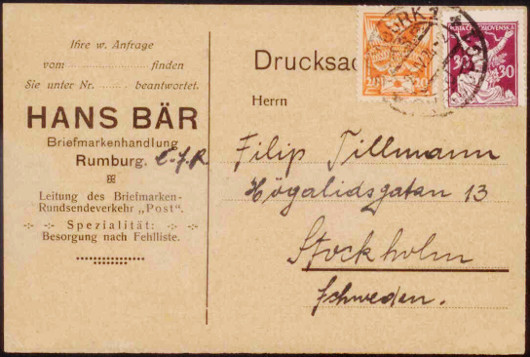 Ihre w. Anfrage
vom ............ finden
Sie unter Nr. ........ beantwortet.
HANS BÄR
Briefmarkenhandlung
Rumburg. Č.S.R
Leitung des Briefmarken-
Rundsendeverkehr „Post“.
Spezialität:
Besorgung nach Fehlliste.
Drucksac
Herrn
Filip Tillmann
Högalidsgatan 13
Stockholm
Schweden.
20 20
30 30